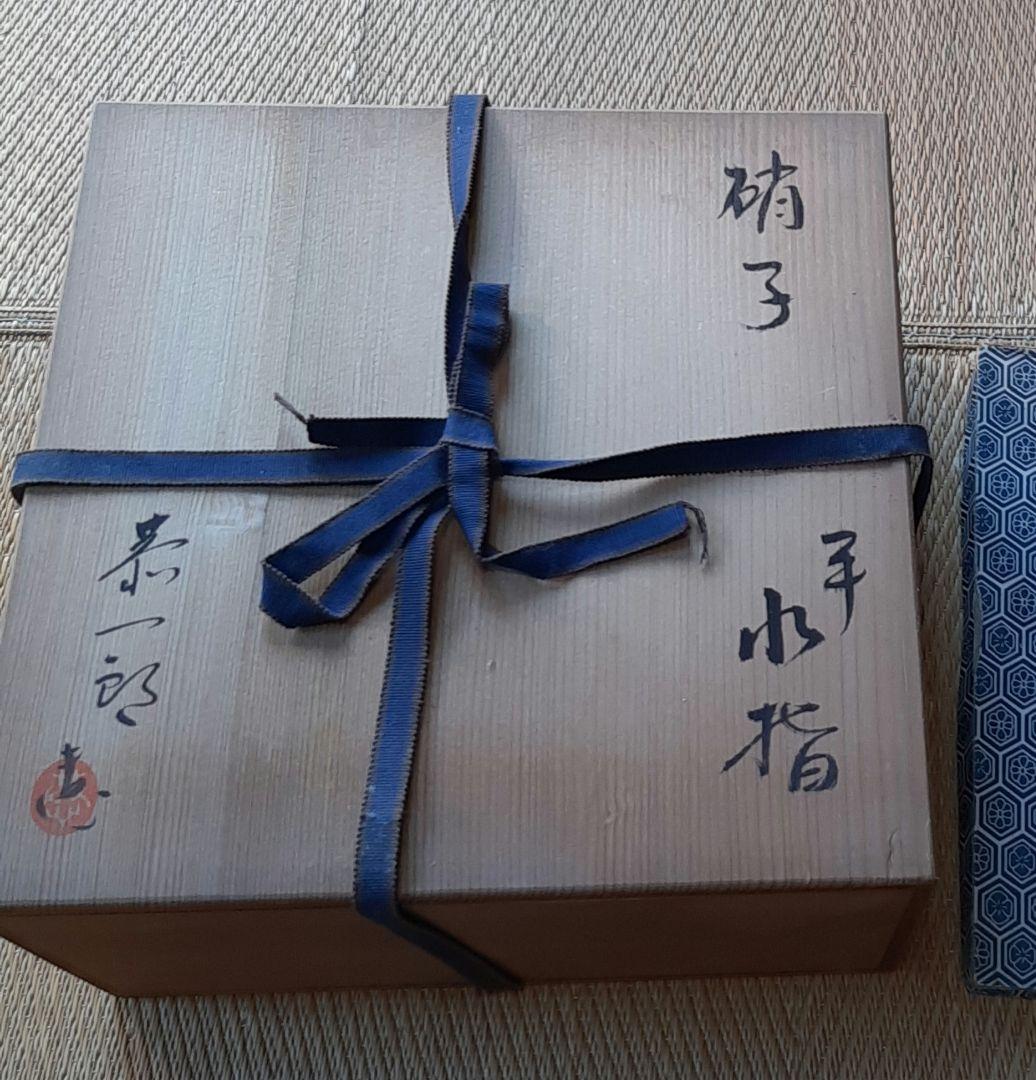 硝子
平水指
恭一郎造